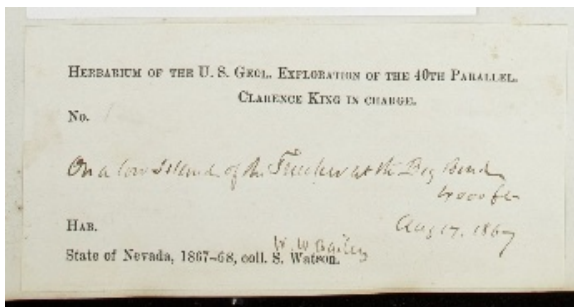 HERBARIUM OF THE U. S. GEOL. EXPLORATION OF THE 40TH PARALLEL.
CLARENCE KING IN CHARGE.
No. 1
On a low Island of the Truckee at the Big Bend
4000 ft
HAB.
Aug 17. 1867
W. W. Bailey
State of Nevada, 1867-68, coll. S. Watson.